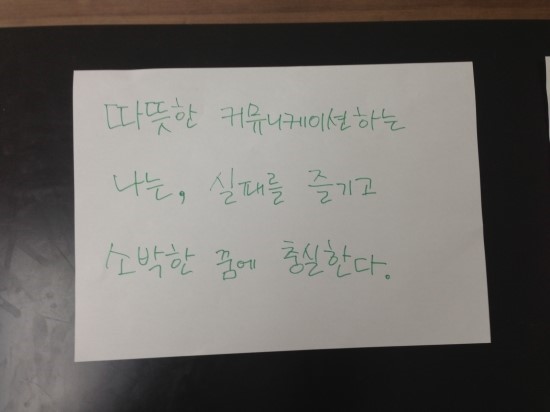 따뜻한 커뮤니케이션하는
나는, 실패를 즐기고
소박한 꿈에 충실한다.